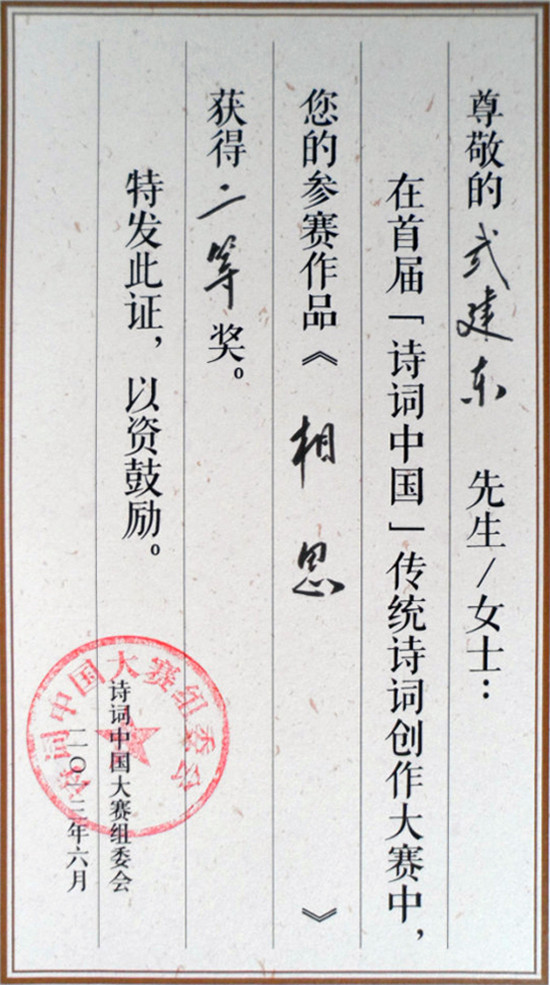 尊敬的武建东 先生/女士：
在首届「诗词中国」传统诗词创作大赛中，
您的参赛作品《相思》
获得二等奖。
特发此证，以资鼓励。
诗词中国大赛组委会
诗词中国大赛组委会
二〇一三年六月